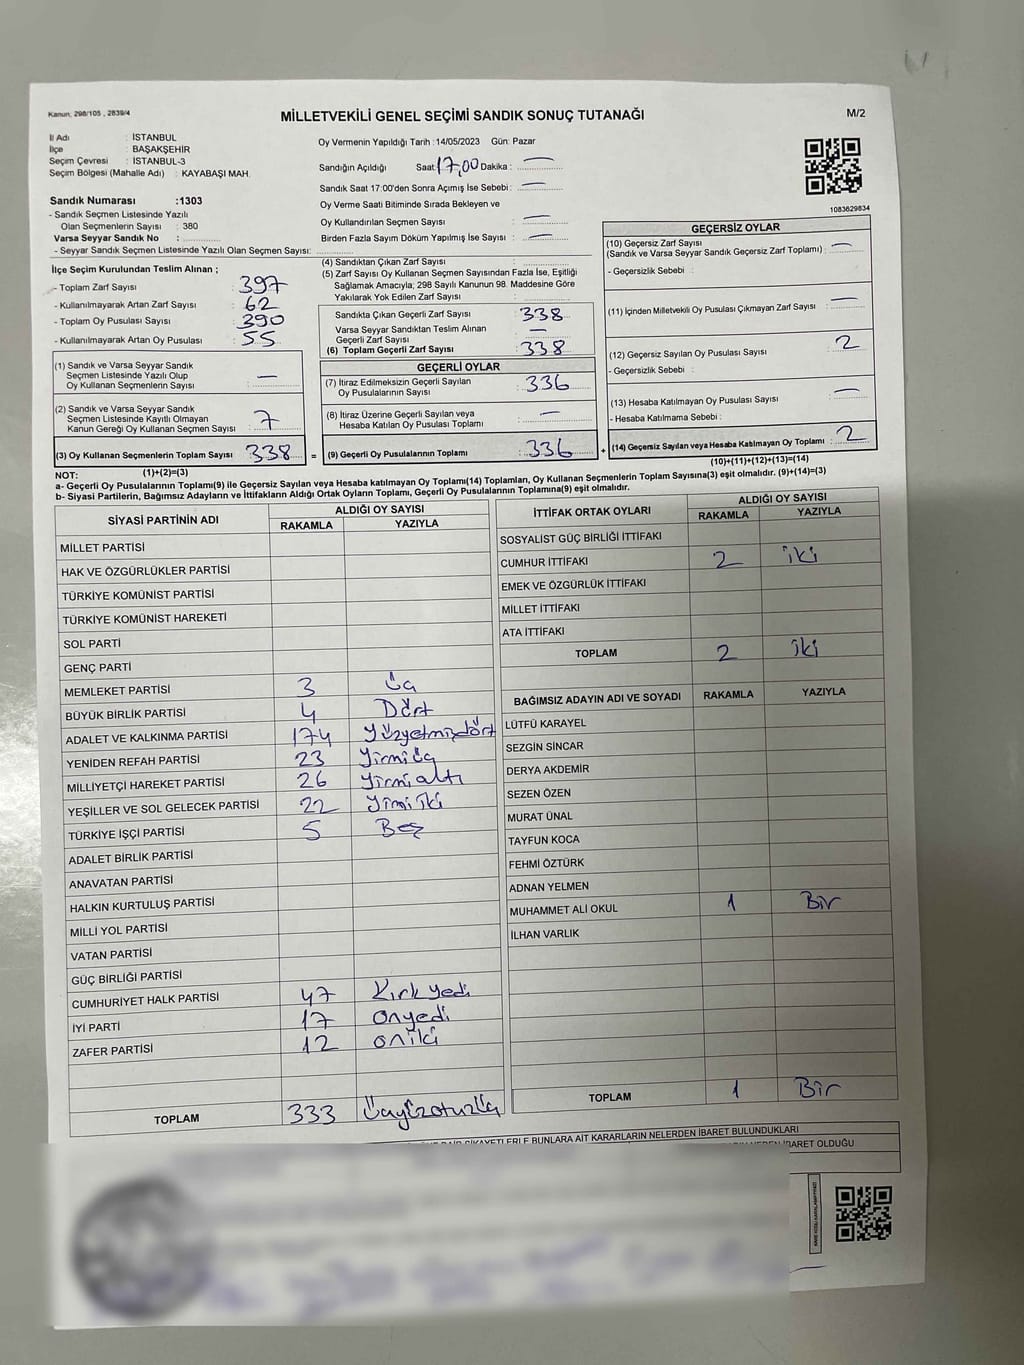 Kanun, 298/105 , 2839/4
MİLLETVEKİLİ GENEL SEÇİMİ SANDIK SONUÇ TUTANAĞI
M/2
İl Adı : İSTANBUL
İlçe : BAŞAKŞEHİR
Seçim Çevresi : İSTANBUL-3
Seçim Bölgesi (Mahalle Adı) : KAYABAŞI MAH.
Sandık Numarası :1303
- Sandık Seçmen Listesinde Yazılı
Olan Seçmenlerin Sayısı : 380
Varsa Seyyar Sandık No :
- Seyyar Sandık Seçmen Listesinde Yazılı Olan Seçmen Sayısı:
Oy Vermenin Yapıldığı Tarih :14/05/2023 Gün: Pazar
Sandığın Açıldığı Saat 17,00 Dakika : —
Sandık Saat 17:00'den Sonra Açımış İse Sebebi : —
Oy Verme Saati Bitiminde Sırada Bekleyen ve
Oy Kullandırılan Seçmen Sayısı : —
Birden Fazla Sayım Döküm Yapılmış İse Sayısı : —
1083629834
İlçe Seçim Kurulundan Teslim Alınan ;
- Toplam Zarf Sayısı : 397
- Kullanılmayarak Artan Zarf Sayısı : 62
- Toplam Oy Pusulası Sayısı : 390
- Kullanılmayarak Artan Oy Pusulası : 55
(1) Sandık ve Varsa Seyyar Sandık
Seçmen Listesinde Yazılı Olup
Oy Kullanan Seçmenlerin Sayısı : —
(2) Sandık ve Varsa Seyyar Sandık
Seçmen Listesinde Kayıtlı Olmayan
Kanun Gereği Oy Kullanan Seçmen Sayısı : 7
(3) Oy Kullanan Seçmenlerin Toplam Sayısı : 338
(4) Sandıktan Çıkan Zarf Sayısı :
(5) Zarf Sayısı Oy Kullanan Seçmen Sayısından Fazla İse, Eşitliği
Sağlamak Amacıyla; 298 Sayılı Kanunun 98. Maddesine Göre
Yakılarak Yok Edilen Zarf Sayısı :
Sandıkta Çıkan Geçerli Zarf Sayısı : 338
Varsa Seyyar Sandıktan Teslim Alınan
Geçerli Zarf Sayısı : —
(6) Toplam Geçerli Zarf Sayısı : 338
GEÇERLİ OYLAR
(7) İtiraz Edilmeksizin Geçerli Sayılan
Oy Pusulalarının Sayısı : 336
(8) İtiraz Üzerine Geçerli Sayılan veya
Hesaba Katılan Oy Pusulası Toplamı : —
= (9) Geçerli Oy Pusulalarının Toplamı : 336 +
GEÇERSİZ OYLAR
(10) Geçersiz Zarf Sayısı : —
(Sandık ve Varsa Seyyar Sandık Geçersiz Zarf Toplamı)
- Geçersizlik Sebebi :
(11) İçinden Milletvekili Oy Pusulası Çıkmayan Zarf Sayısı : —
(12) Geçersiz Sayılan Oy Pusulası Sayısı : 2
- Geçersizlik Sebebi :
(13) Hesaba Katılmayan Oy Pusulası Sayısı : —
- Hesaba Katılmama Sebebi :
(14) Geçersiz Sayılan veya Hesaba Katılmayan Oy Toplamı : 2
NOT: (1)+(2)=(3)
(10)+(11)+(12)+(13)=(14)
a- Geçerli Oy Pusulalarının Toplamı(9) ile Geçersiz Sayılan veya Hesaba katılmayan Oy Toplamı(14) Toplamları, Oy Kullanan Seçmenlerin Toplam Sayısına(3) eşit olmalıdır. (9)+(14)=(3)
b- Siyasi Partilerin, Bağımsız Adayların ve İttifakların Aldığı Ortak Oyların Toplamı, Geçerli Oy Pusulalarının Toplamına(9) eşit olmalıdır.
SİYASİ PARTİNİN ADI ALDIĞI OY SAYISI
RAKAMLA YAZIYLA
MİLLET PARTİSİ
HAK VE ÖZGÜRLÜKLER PARTİSİ
TÜRKİYE KOMÜNİST PARTİSİ
TÜRKİYE KOMÜNİST HAREKETİ
SOL PARTİ
GENÇ PARTİ
MEMLEKET PARTİSİ 3 Üç
BÜYÜK BİRLİK PARTİSİ 4 Dört
ADALET VE KALKINMA PARTİSİ 174 Yüzyetmişdört
YENİDEN REFAH PARTİSİ 23 Yirmiüç
MİLLİYETÇİ HAREKET PARTİSİ 26 Yirmialtı
YEŞİLLER VE SOL GELECEK PARTİSİ 22 Yimiiki
TÜRKİYE İŞÇİ PARTİSİ 5 Beş
ADALET BİRLİK PARTİSİ
ANAVATAN PARTİSİ
HALKIN KURTULUŞ PARTİSİ
MİLLİ YOL PARTİSİ
VATAN PARTİSİ
GÜÇ BİRLİĞİ PARTİSİ
CUMHURİYET HALK PARTİSİ 47 Kırkyedi
İYİ PARTİ 17 onyedi
ZAFER PARTİSİ 12 oniki
TOPLAM 333 Üçyüzotuzüç
İTTİFAK ORTAK OYLARI ALDIĞI OY SAYISI
RAKAMLA YAZIYLA
SOSYALİST GÜÇ BİRLİĞİ İTTİFAKI
CUMHUR İTTİFAKI 2 iki
EMEK VE ÖZGÜRLÜK İTTİFAKI
MİLLET İTTİFAKI
ATA İTTİFAKI
TOPLAM 2 iki
BAĞIMSIZ ADAYIN ADI VE SOYADI RAKAMLA YAZIYLA
LÜTFÜ KARAYEL
SEZGİN SİNCAR
DERYA AKDEMİR
SEZEN ÖZEN
MURAT ÜNAL
TAYFUN KOCA
FEHMİ ÖZTÜRK
ADNAN YELMEN
MUHAMMET ALİ OKUL 1 Bir
İLHAN VARLIK
TOPLAM 1 Bir
BUNLARA AİT KARARLARIN NELERDEN İBARET BULUNDUKLARI
İBARET OLDUĞU